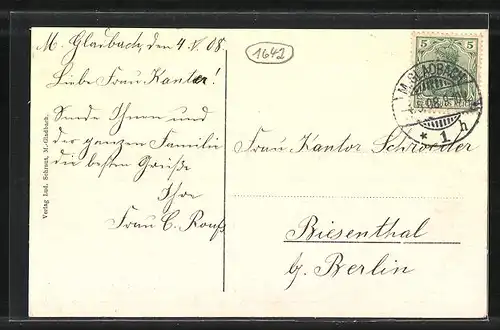 M. Gladbach, den 4.V.08.
Liebe Frau Kantor!
Sende Ihnen und
der ganzen Familie
die besten Grüße
Ihre
Frau C.
1642
Verlag Lud. Schraut, M.-Gladbach.
5 5
M. GLADBACH
08
* 1 h
Frau Kantor Schroeder
Biesenthal
b/. Berlin